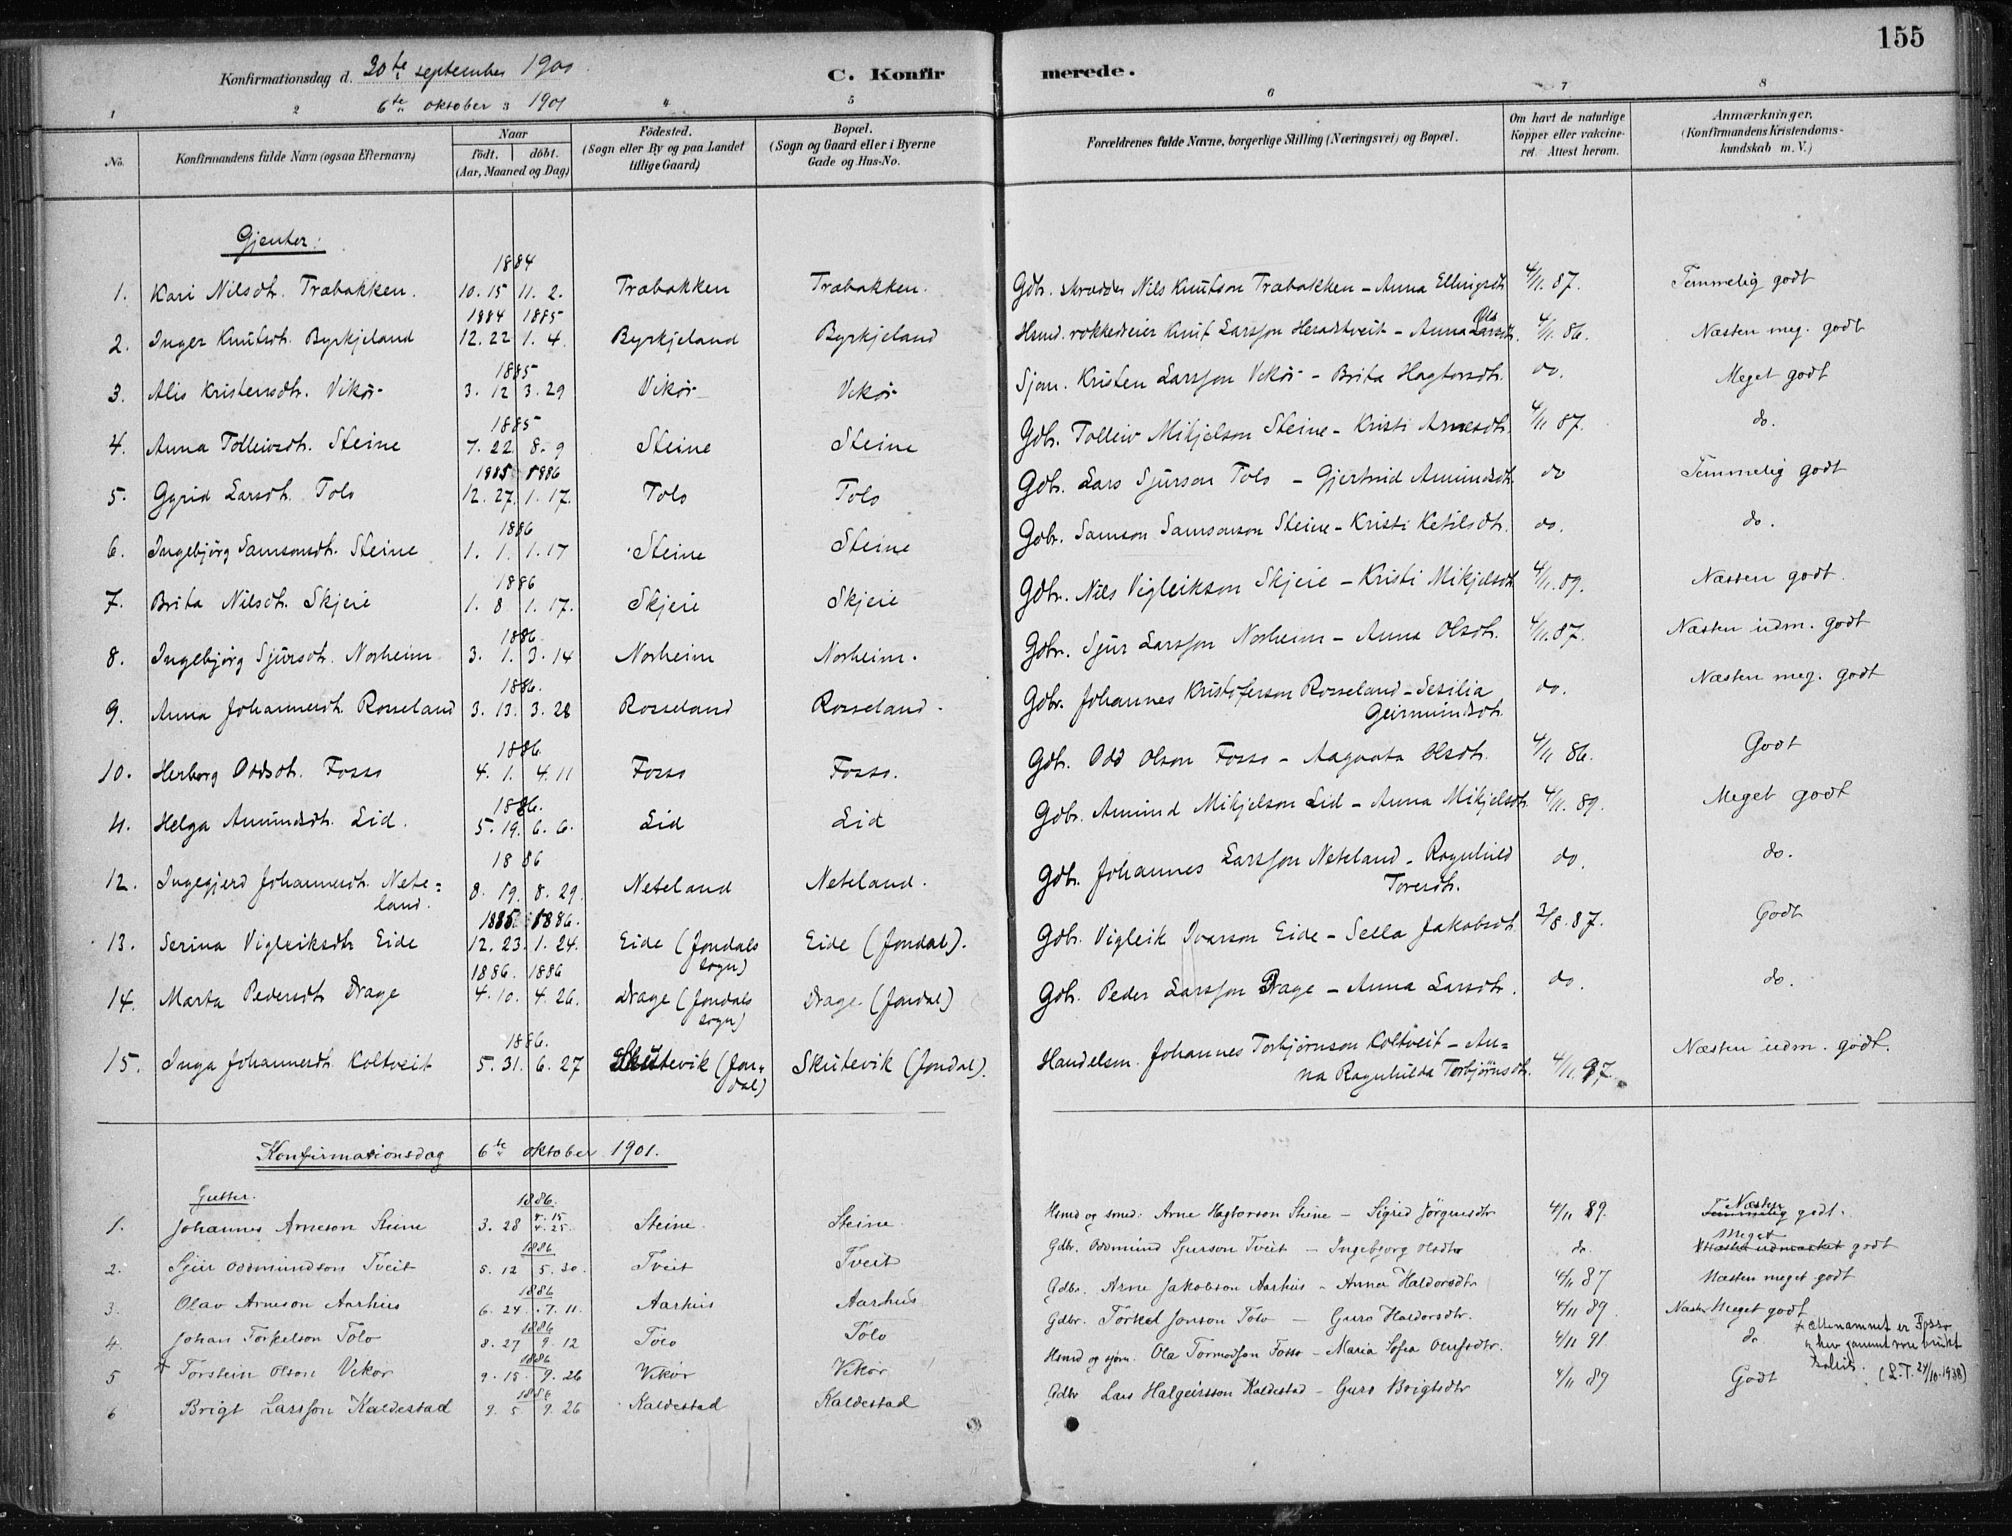 155
Konfirmationsdag d. 30te september 1900.
6te oktober 1901
C. Konfirmerede.
1 2 3 4 5 6 7 8
No.
Konfirmandens fulde Navn (ogsaa Efternavn)
Naar
födt. döbt.
(Aar, Maaned og Dag)
Födested.
(Sogn eller By og paa Landet tillige Gaard)
Bopæl.
(Sogn og Gaard eller i Byerne Gade og Hus-No.
Forældrenes fulde Navne, borgerlige Stilling (Næringsvei) og Bopæl.
Om havt de naturlige Kopper eller vaccineret. Attest herom.
Anmærkninger.
(Konfirmandens Kristendomskundskab m. V.)
Gjenter:
1884
1. Kari Nilsdtr. Træbakken. 10. 15 11. 2. Træbakken Træbakken. Gdbr. skrædder Nils Knutson Træbakken – Anna Ellingsdtr 4/11. 87. Temmelig godt
1884 1885
2. Inger Knutsdtr. Byrkjeland 12. 22 1. 4. Byrkjeland Byrkjeland Hsmd. rokkedreier Knut Larsson Heradstveit – Anna Larsdtr. 4/11. 86. Næsten meg. godt
Ols
1885
3. Alis Kristensdtr. Vikør 3. 12 3. 29 Vikør Vikør Sjøm. Kristen Larsson Vikør – Brita Hagtorsdtr. do. Meget godt
1885
4. Anna Tolleivsdtr. Steine 7. 22. 8. 9 Steine Steine Gdbr. Tolleiv Mikjelson Steine – Kristi Arnesdtr. 4/11 87. do.
1885 1886
5. Gyrid Larsdtr. Tolo 12. 27. 1. 17. Tolo Tolo Gdbr. Lars Sjurson Tolo – Gjertrud Amundsdtr. do Temmelig godt
1886
6. Ingebjørg Samsonsdtr. Steine 1. 1. 1. 17 Steine Steine Gdbr. Samson Samsonson Steine – Kristi Ketilsdtr. do. do.
1886
7. Brita Nilsdtr. Skjeie 1. 8. 1. 17. Skjeie Skjeie Gdbr. Nils Vigleikson Skjeie – Kristi Mikjelsdtr 4/11. 89. Næsten godt.
1886.
8. Ingebjørg Sjursdtr. Norheim 3. 1. 3. 14 Norheim Norheim. Gdbr. Sjur Larsson Norheim – Anna Olsdtr. 4/11. 87. Næsten udm. godt
1886.
9. Anna Johannesdtr. Rosseland 3. 13. 3. 28 Rosseland Rosseland. Gdbr. Johannes Kristoferson Rosseland – Sesilia do. Næsten meg. godt
Geirmundsdtr.
1886.
10. Herborg Oddsdtr. Fosso 4. 1. 4. 11 Fosso Fosso. Gdbr. Odd Olson Fosso – Aagaata Olsdtr. 4/11 86. Godt
1886.
11. Helga Amundsdtr. Lid. 5. 19. 6. 6. Lid Lid Gdbr. Amund Mikjelson Lid – Anna Mikjelsdtr 4/11. 89. Meget godt
1886
12. Ingegjerd Johannesdtr. Nete= 8. 19. 8. 29. Neteland Neteland. Gdbr. Johannes Larsson Neteland – Ragnhild do. do.
land. Toresdtr.
1885 1886.
13. Serina Vigleiksdtr Eide 12. 23. 1. 24. Eide (Jondals Eide (Jondal). Gdbr. Vigleik Ivarson Eide – Sella Jakobsdtr. 3/8. 87. Godt
sogn)
1886. 1886
14. Marta Pedersdtr Drage 4. 10. 4. 26. Drage (Jondals Drage (Jondal) Gdbr. Peder Larsson Drage – Anna Larsdtr. do. do.
sogn)
1886.
15. Inga Johannesdtr. Koltveit 5. 31. 6. 27 Skutevik (Jon- Skutevik (Jondal). Handelsm. Johannes Torbjørnson Koltveit – An= Næsten udm. godt.
dal) na Ragnhilda Torbjørnsdtr. 4/11. 97.
Konfirmationsdag 6te oktober 1901.
Gutter.
1886.
1. Johannes Arneson Steine 3. 28 4. 15 4. 25. Steine Steine Hsmd og smed. Arne Hagtorson Steine – Sigrid Jørgensdtr 4/11 89. Temmelig Næsten godt.
1886
2. Sjur Oddmundson Tveit 5. 12 5. 30. Tveit Tveit Gdbr. Oddmund Sjurson Tveit – Ingebjørg Olsdtr do Næsten udmærket Meget godt
1886
3. Olav Arneson Aarhus 6. 24. 7. 11. Aarhus Aarhus Gdbr. Arne Jakobson Aarhus – Anna Haldorsdtr 4/11 87 Næsten meget godt
1886
4. Johan Torkelson Tolo 8. 27 9. 12 Tolo Tolo Gdbr. Torkel Jonson Tolo – Guro Haldorsdtr. 4/11 89. Næsten Meget godt
1886
5 + Torstein Olson Vekør 9. 15. 9. 26 Vekør Vekør Hsmd og sjøm. Ola Tormodson Fosso – Maria Sofia Olufsdtr. 4/11 91 do
+ ættenamnet er Fosso
(L.T. 24/10-1938)
1886
6 Brigt Larsson Kaldestad 9. 5 9. 26 Kaldestad Kaldestad Gdbr Lars Halgeirsson Kaldestad – Guro Brigtsdtr 4/11 89 Godt